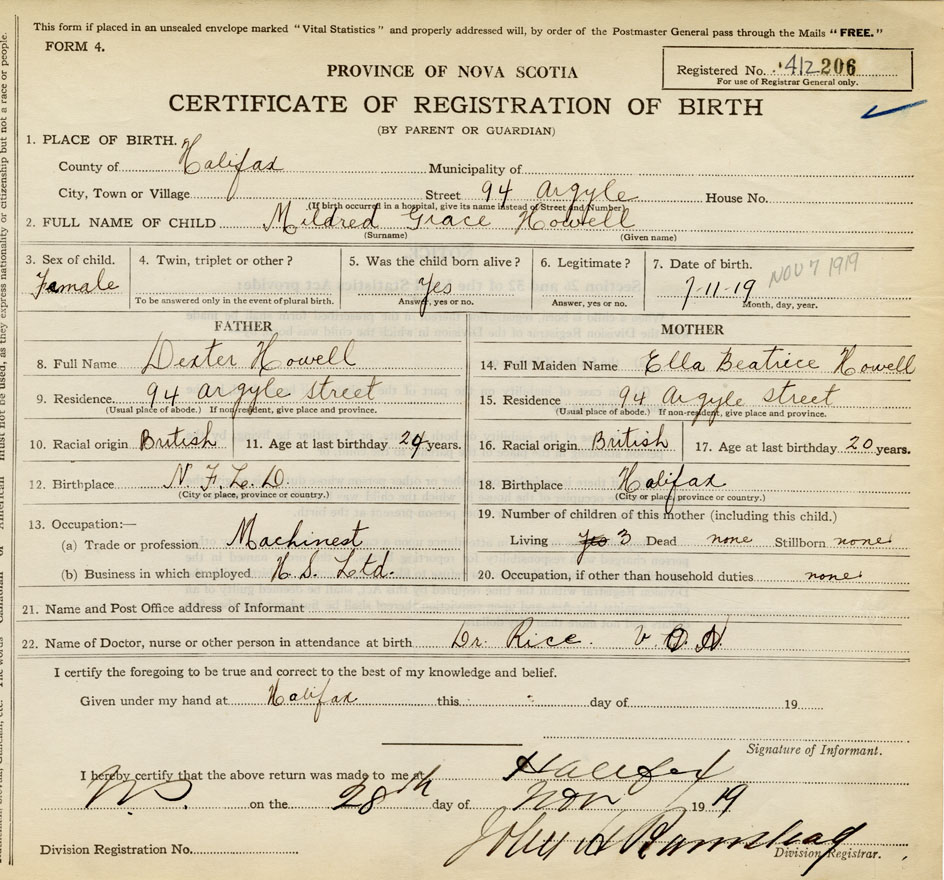 This form if placed in an unsealed envelope marked "Vital Statistics" and properly addressed will, by order of the Postmaster General pass through the Mails "FREE."
FORM 4.
Registered No. 412206
For use of Registrar General only.
PROVINCE OF NOVA SCOTIA
CERTIFICATE OF REGISTRATION OF BIRTH
(BY PARENT OR GUARDIAN)
1. PLACE OF BIRTH.
County of Halifax Municipality of
City, Town or Village Street 94 Argyle House No.
(If birth occurred in a hospital, give its name instead of Street and Number)
2. FULL NAME OF CHILD Mildred Grace Howell
(Surname) (Given name)
3. Sex of child. Female
4. Twin, triplet or other?
To be answered only in the event of plural birth.
5. Was the child born alive? Yes
Answer, yes or no.
6. Legitimate?
Answer, yes or no.
7. Date of birth. NOV 7 1919
7-11-19
Month, day, year.
FATHER
8. Full Name Dexter Howell
9. Residence. 94 Argyle street
(Usual place of abode.) If non-resident, give place and province.
10. Racial origin British 11. Age at last birthday 24 years.
12. Birthplace N. F. L. D.
(City or place, province or country.)
13. Occupation:—
(a) Trade or profession Machinest
(b) Business in which employed H. S. Ltd.
MOTHER
14. Full Maiden Name Ella Beatrice Howell
15. Residence 94 Argyle street
(Usual place of abode.) If non-resident, give place and province.
16. Racial origin British 17. Age at last birthday 20 years.
18. Birthplace Halifax
(City or place, province or country.)
19. Number of children of this mother (including this child.)
Living yes 3 Dead none Stillborn none
20. Occupation, if other than household duties none
21. Name and Post Office address of Informant
22. Name of Doctor, nurse or other person in attendance at birth Dr. Rice. V. O. N.
I certify the foregoing to be true and correct to the best of my knowledge and belief.
Given under my hand at Halifax this day of 19
Signature of Informant.
I hereby certify that the above return was made to me at Halifax
N.S. on the 28th day of Nov 1919
John A
Division Registration No. Division Registrar.